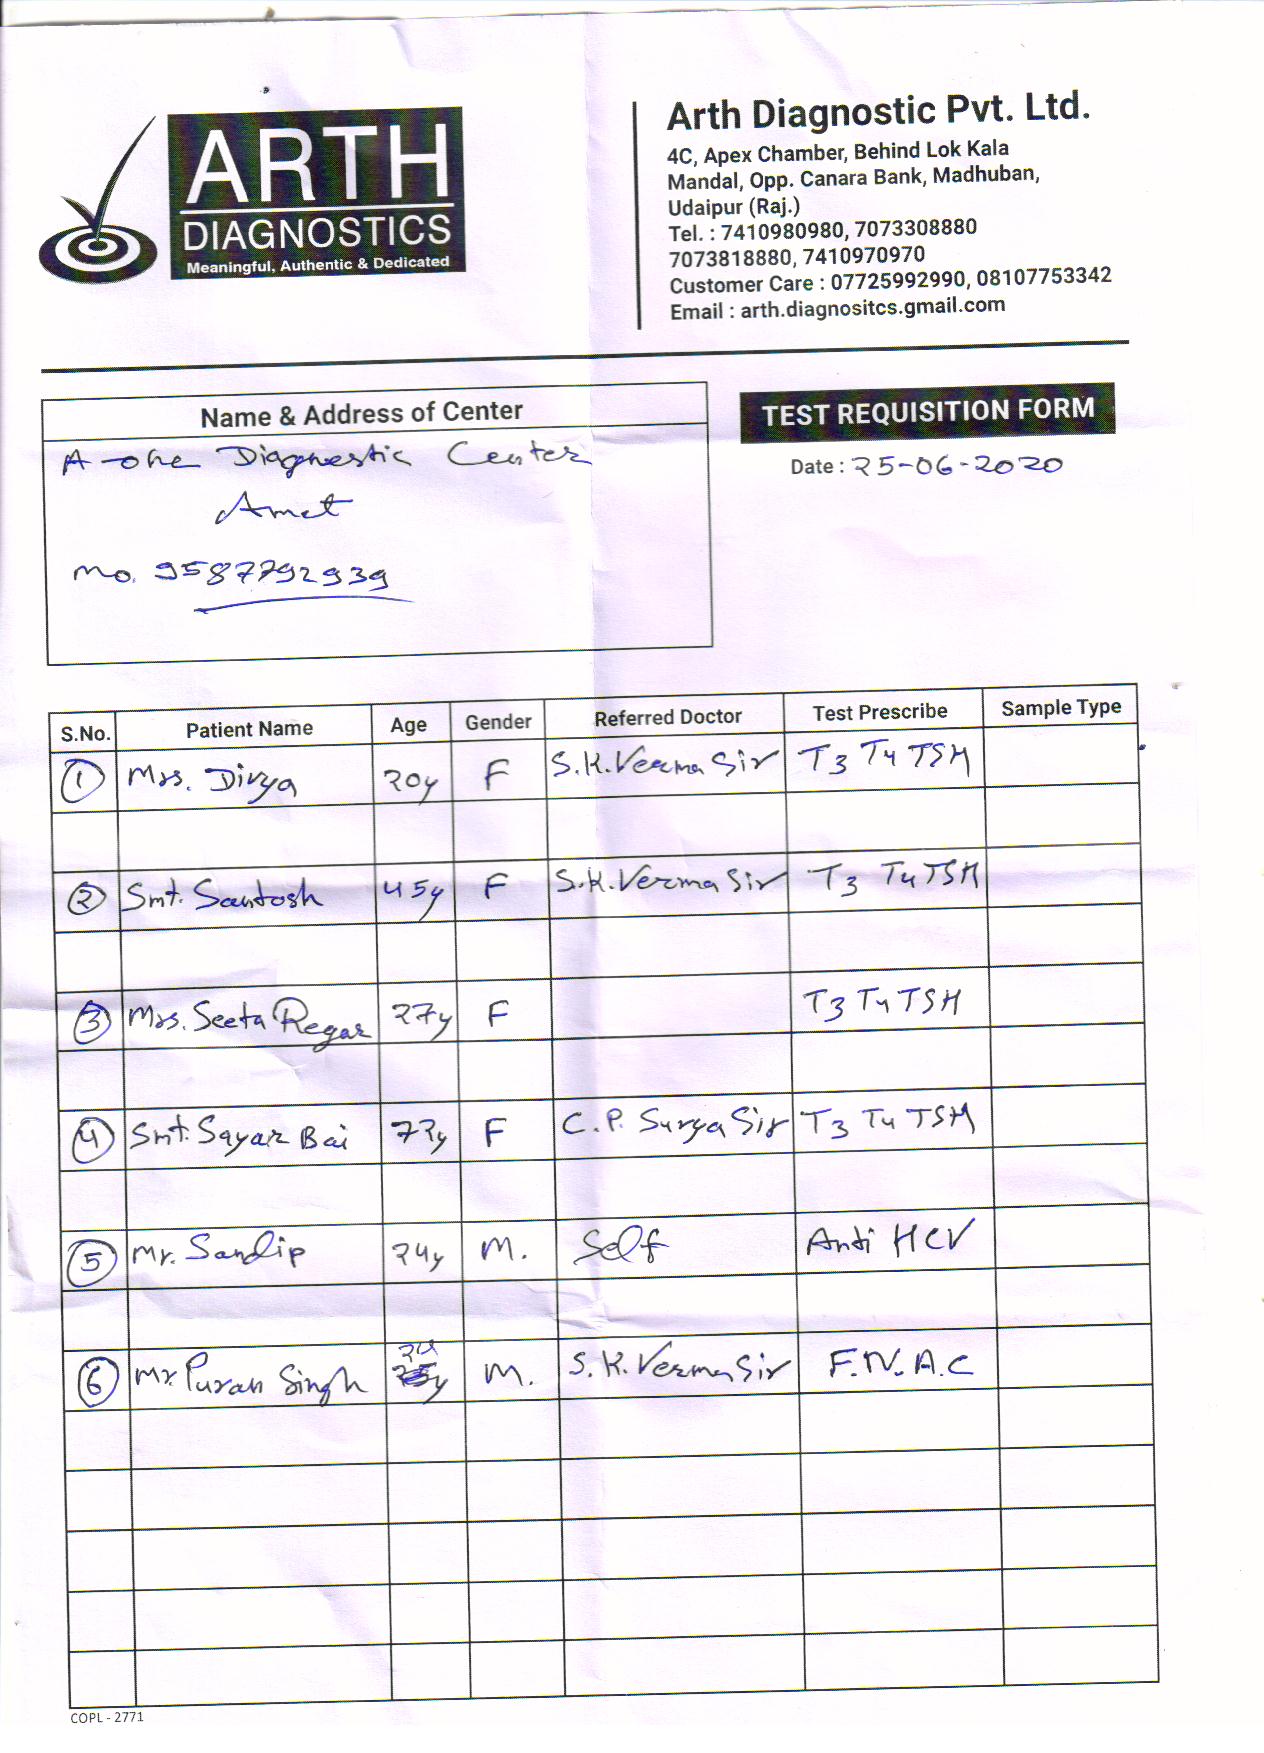 ARTH
DIAGNOSTICS
Meaningful, Authentic & Dedicated
Arth Diagnostic Pvt. Ltd.
4C, Apex Chamber, Behind Lok Kala
Mandal, Opp. Canara Bank, Madhuban,
Udaipur (Raj.)
Tel. : 7410980980, 7073308880
7073818880, 7410970970
Customer Care : 07725992990, 08107753342
Email : arth.diagnositcs.gmail.com
Name & Address of Center
A-one Diagnestic Center
Amet
mo. 9587792939
TEST REQUISITION FORM
Date : 25-06-2020
S.No. Patient Name Age Gender Referred Doctor Test Prescribe Sample Type
1 Mrs. Divya 20y F S.K.Verma Sir T3 T4 TSH
2 Smt. Santosh 45y F S.K.Verma Sir T3 T4 TSH
3 Mrs. Seeta Regar 27y F T3 T4 TSH
4 Smt. Sayar Bai 72y F C.P. Surya Sir T3 T4 TSH
5 Mr. Sandip 24y M. Self Anti HCV
6 Mr. Puran Singh M. S.K.Verma Sir F.N.A.C
COPL - 2771